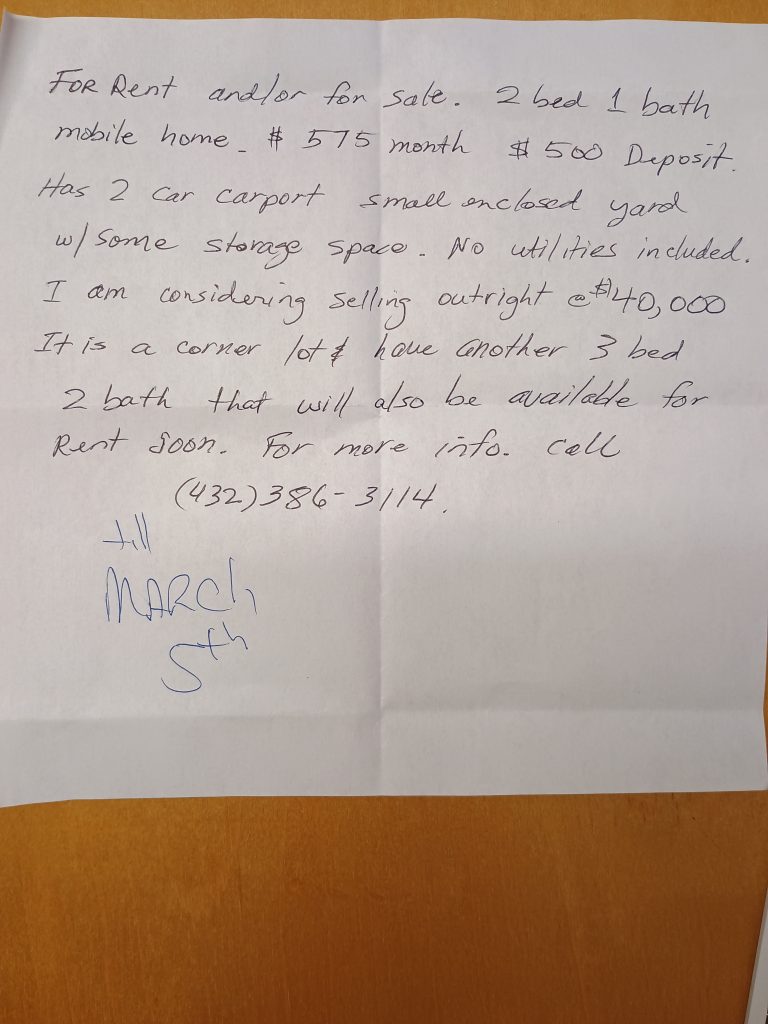 FOR Rent and/or for sale. 2 bed 1 bath
mobile home. $ 575 month $ 500 Deposit.
Has 2 car carport small enclosed yard
w/ some storage space. No utilities included.
I am considering selling outright @ $40,000
It is a corner lot & have another 3 bed
2 bath that will also be available for
Rent soon. For more info. call
(432)386-3114.
till
MARCh
5th